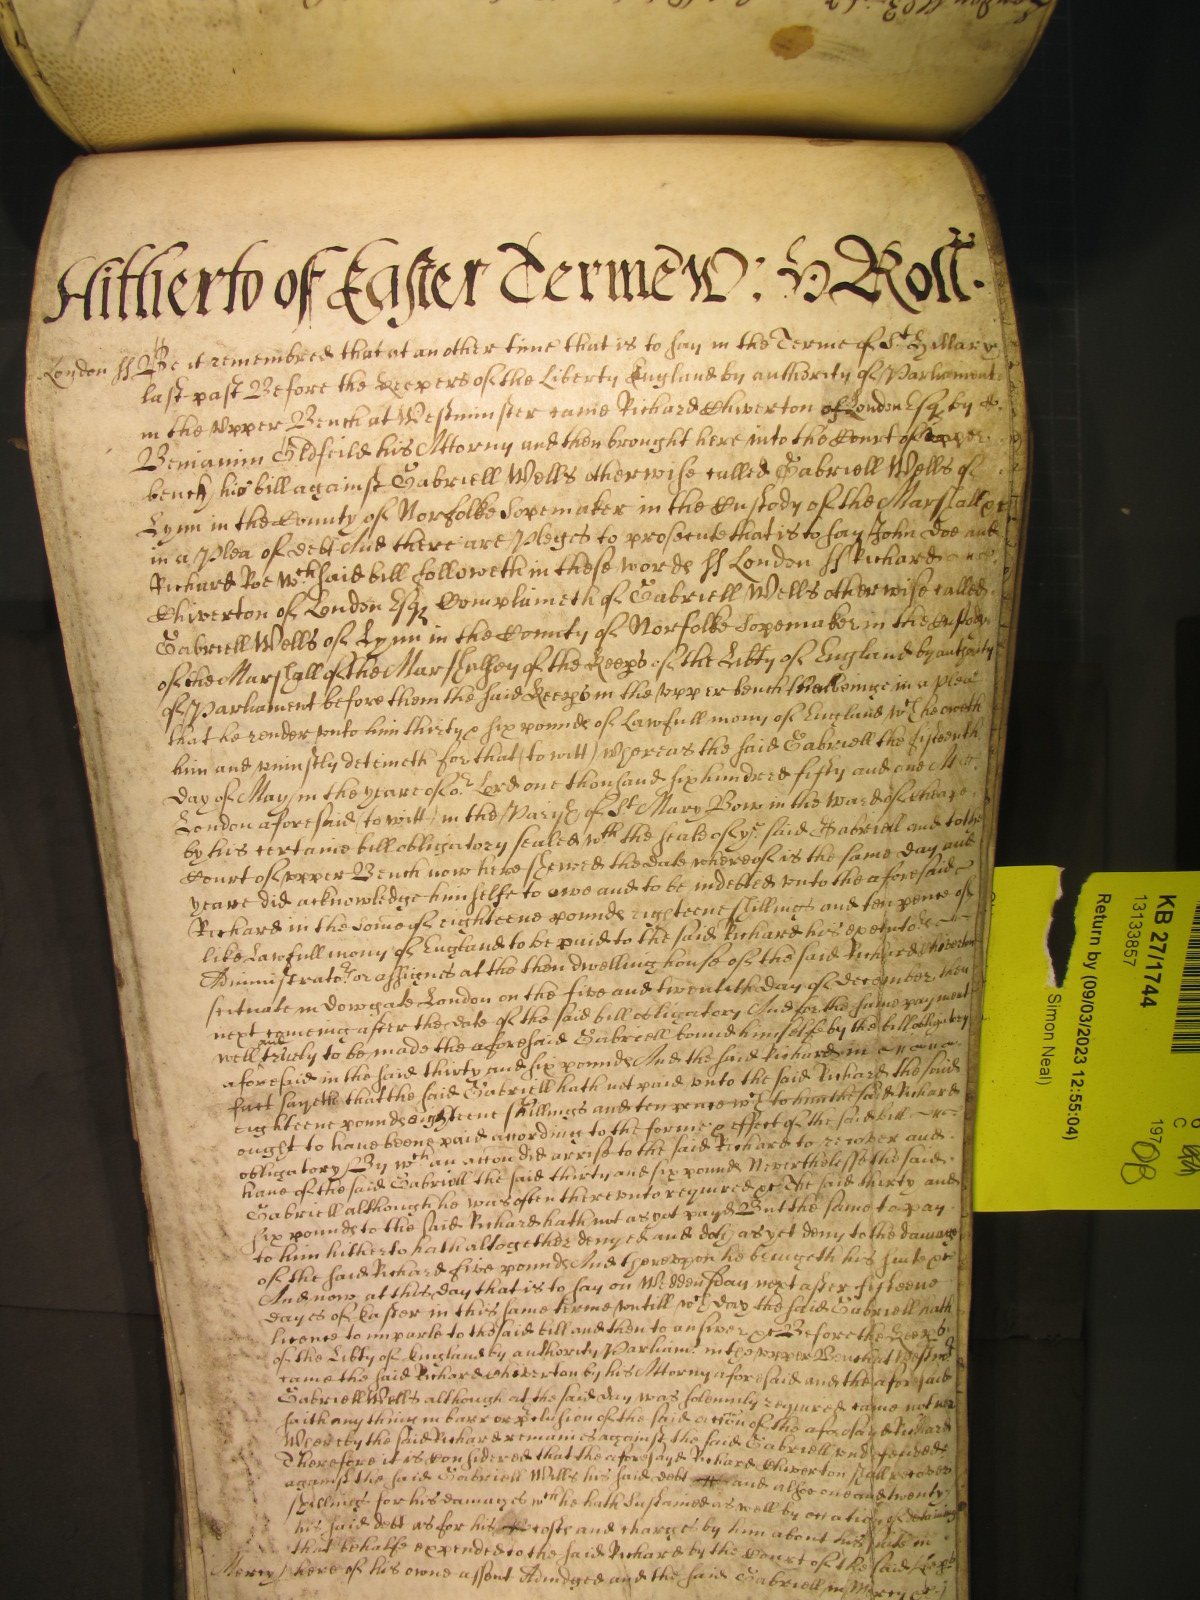 Hitherto of Easter Terme W: H Roll.
London ss Be it remembred that at an other time that is to say in the Terme of St Hillary
last past Before the Keepers of the Liberty England by authority of Parliament
in the Upper Bench at Westminster came Richard Chiverton of London Esqr by
Beniamin Oldfeild his Attorny and then brought here into the Court of upper
bench his bill against Gabriell Wells otherwise called Gabriell Wells of
Lynn in the County of Norfolke Sopemaker in the Custody of the Marshall &c
in a Plea of debt And there are Pleges to prosecute that is to say John Doe and
Richard Roe wch said bill followeth in these words ss London ss Richard
Chiverton of London Esqr Complaineth of Gabriell Wells otherwise called
Gabriell Wells of Lynn in the County of Norfolke Sopemaker in the Custody
of the Marshall of the Marshalsey of the Keeps of the Libty of England by authority
of Parliament before them the said Keeps in the upper bench beinge in a plea
that he render unto him thirty & six pounds of Lawfull mony of England wch he oweth
him and uniustly deteineth for that (to witt) whereas the said Gabriell the fifteenth
day of May in the yeare of or Lord one thousand six hundred fifty and one Att
London aforesaid (to witt) in the Parish of St Mary Bow in the ward of cheape
by his certaine bill obligatory sealed wth the seale of ye said Gabriell and to the
Court of upper Bench now here shewed the date whereof is the same day and
yeare did acknowledge himselfe to owe and to be indebted unto the aforesaid
Richard in the some of eighteene pounds eighteene shillings and ten pence of
like Lawfull mony of England to be paid to the said Richard his executors
Administrators or assignes at the then dwelling house of the said Richard Chiverton
scituate in Dowgate London on the five and twentith day of december then
next comeing after the date of the said bill obligatory And for the same payment
well and truely to be made the aforesaid Gabriell bound himselfe by the bill obligatory
aforesaid in the said thirty and six pounds And the said Richard in
fact sayeth that the said Gabriell hath not paid unto the said Richard the said
eighteene pounds eighteene shillings and ten pence wch to him the said Richard
ought to have beene paid according to the forme & effect of the said bill
obligatory By wch an accon did arrise to the said Richard to recover and
have of the said Gabriell the said thirty and six pounds Neverthelesse the said
Gabriell although he was often thereunto required &c The said thirty and
six pounds to the said Richard hath not as yet payd But the same to pay
to him hitherto hath altogether denyed and doth as yet deny to the damage
of the said Richard five pounds And thereupon he bringeth his suite &c
And now at this day that is to say on Weddensday next after fifteene
dayes of Easter in this same terme untill wch day the said Gabriell hath
licence to imparle to the said bill and then to answer &c Before the Keeps
of the Libty of England by authority Parliamt in the upper Bench at Westmr
came the said Richard Chiverton by his Attorny aforesaid and the aforesaid
Gabriell Wells although at the said day was solemnly required came not nor
saith any thing in barr or p'clusion of the said accon of the aforesayd Richard
Whereby the said Richard remaines against the said Gabriell undefended
Therefore it is Considered that the aforesayd Richard Chiverton shall recover
against the said Gabriell Wells his said debt and alsoe one and twenty
shillings for his damages wch he hath sustained as well by occation of
his said debt as for his costs and charges by him about his suite in
that behalfe expended to the said Richard by the Court of the said Keeps
Mercy) here of his owne assent Adiudged and the said Gabriell in Mercy &c)
KB 27/1744
13133857
Return by (09/03/2023 12:55:04)
Simon Neal)